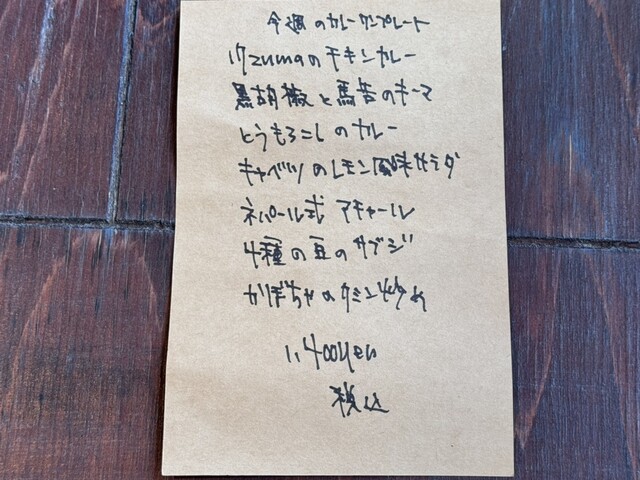 今週のカレーワンプレート
iyzumaのチキンカレー
黒胡椒と馬告のキーマ
とうもろこしのカレー
キャベツのレモン風味サラダ
ネパール式 アチャール
4種の豆のサブジ
かぼちゃのクミン炒め
1,400yen
税込